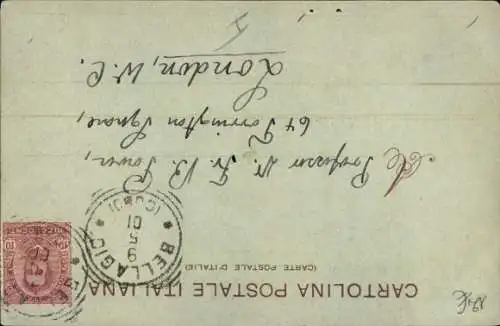 CARTOLINA POSTALE ITALIANA
(CARTE POSTALE D'ITALIE)
BELLAGIO
9
5
01
(COMO)
Al Professor W. Fr. B. Power,
64 Torrington Square,
London, W.C.